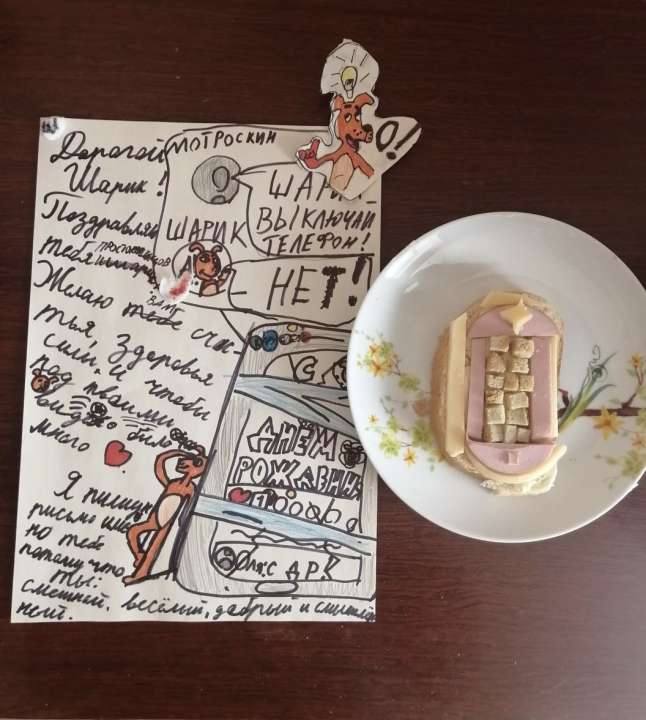 Дорогой
Шарик!
Поздравляю
тебя
Желаю тебе счас-
тья, здоровья
сил, и чтобы
под твоими
видео было
много
Я пишу
письмо
но тебе
потому что
ты:
смешной, весёлый, добрый и
МОТРОСКИН
ШАРИК
ВЫКЛЮЧАЙ
ТЕЛЕФОН!
ШАРИК
НЕТ!
О!
С
ДНЁМ
РОЖДЕНИЯ
с ДР!